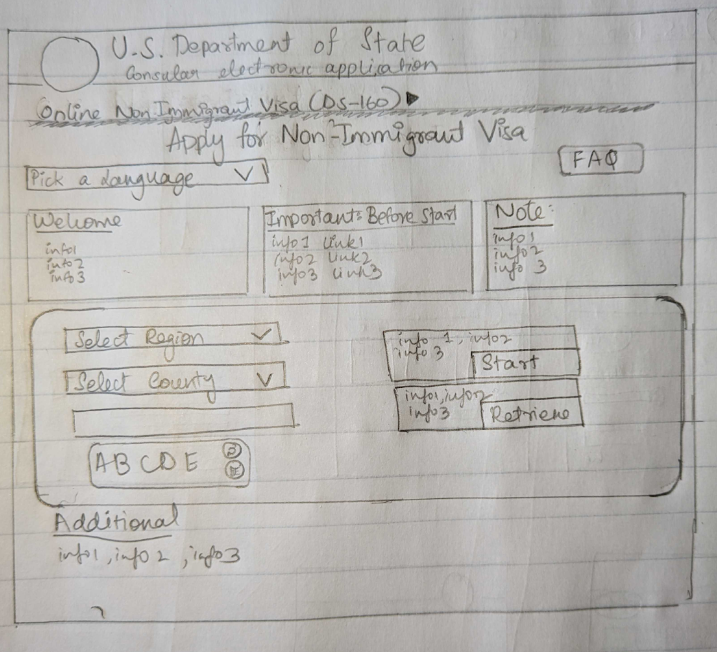 U.S. Department of State
Consular electronic application
Online Non Immigrant Visa (DS-160)
Apply for Non-Immigrant Visa
FAQ
Pick a Language
Welcome
info1
info2
info3
Important: Before Start
info1 Link1
info2 Link2
info3 Link3
Note:
info1
info2
info 3
Select Region
Select County
A B C D E
info 1, info2
info 3
Start
info1, info2
info3
Retrieve
Additional
info1, info 2, info3